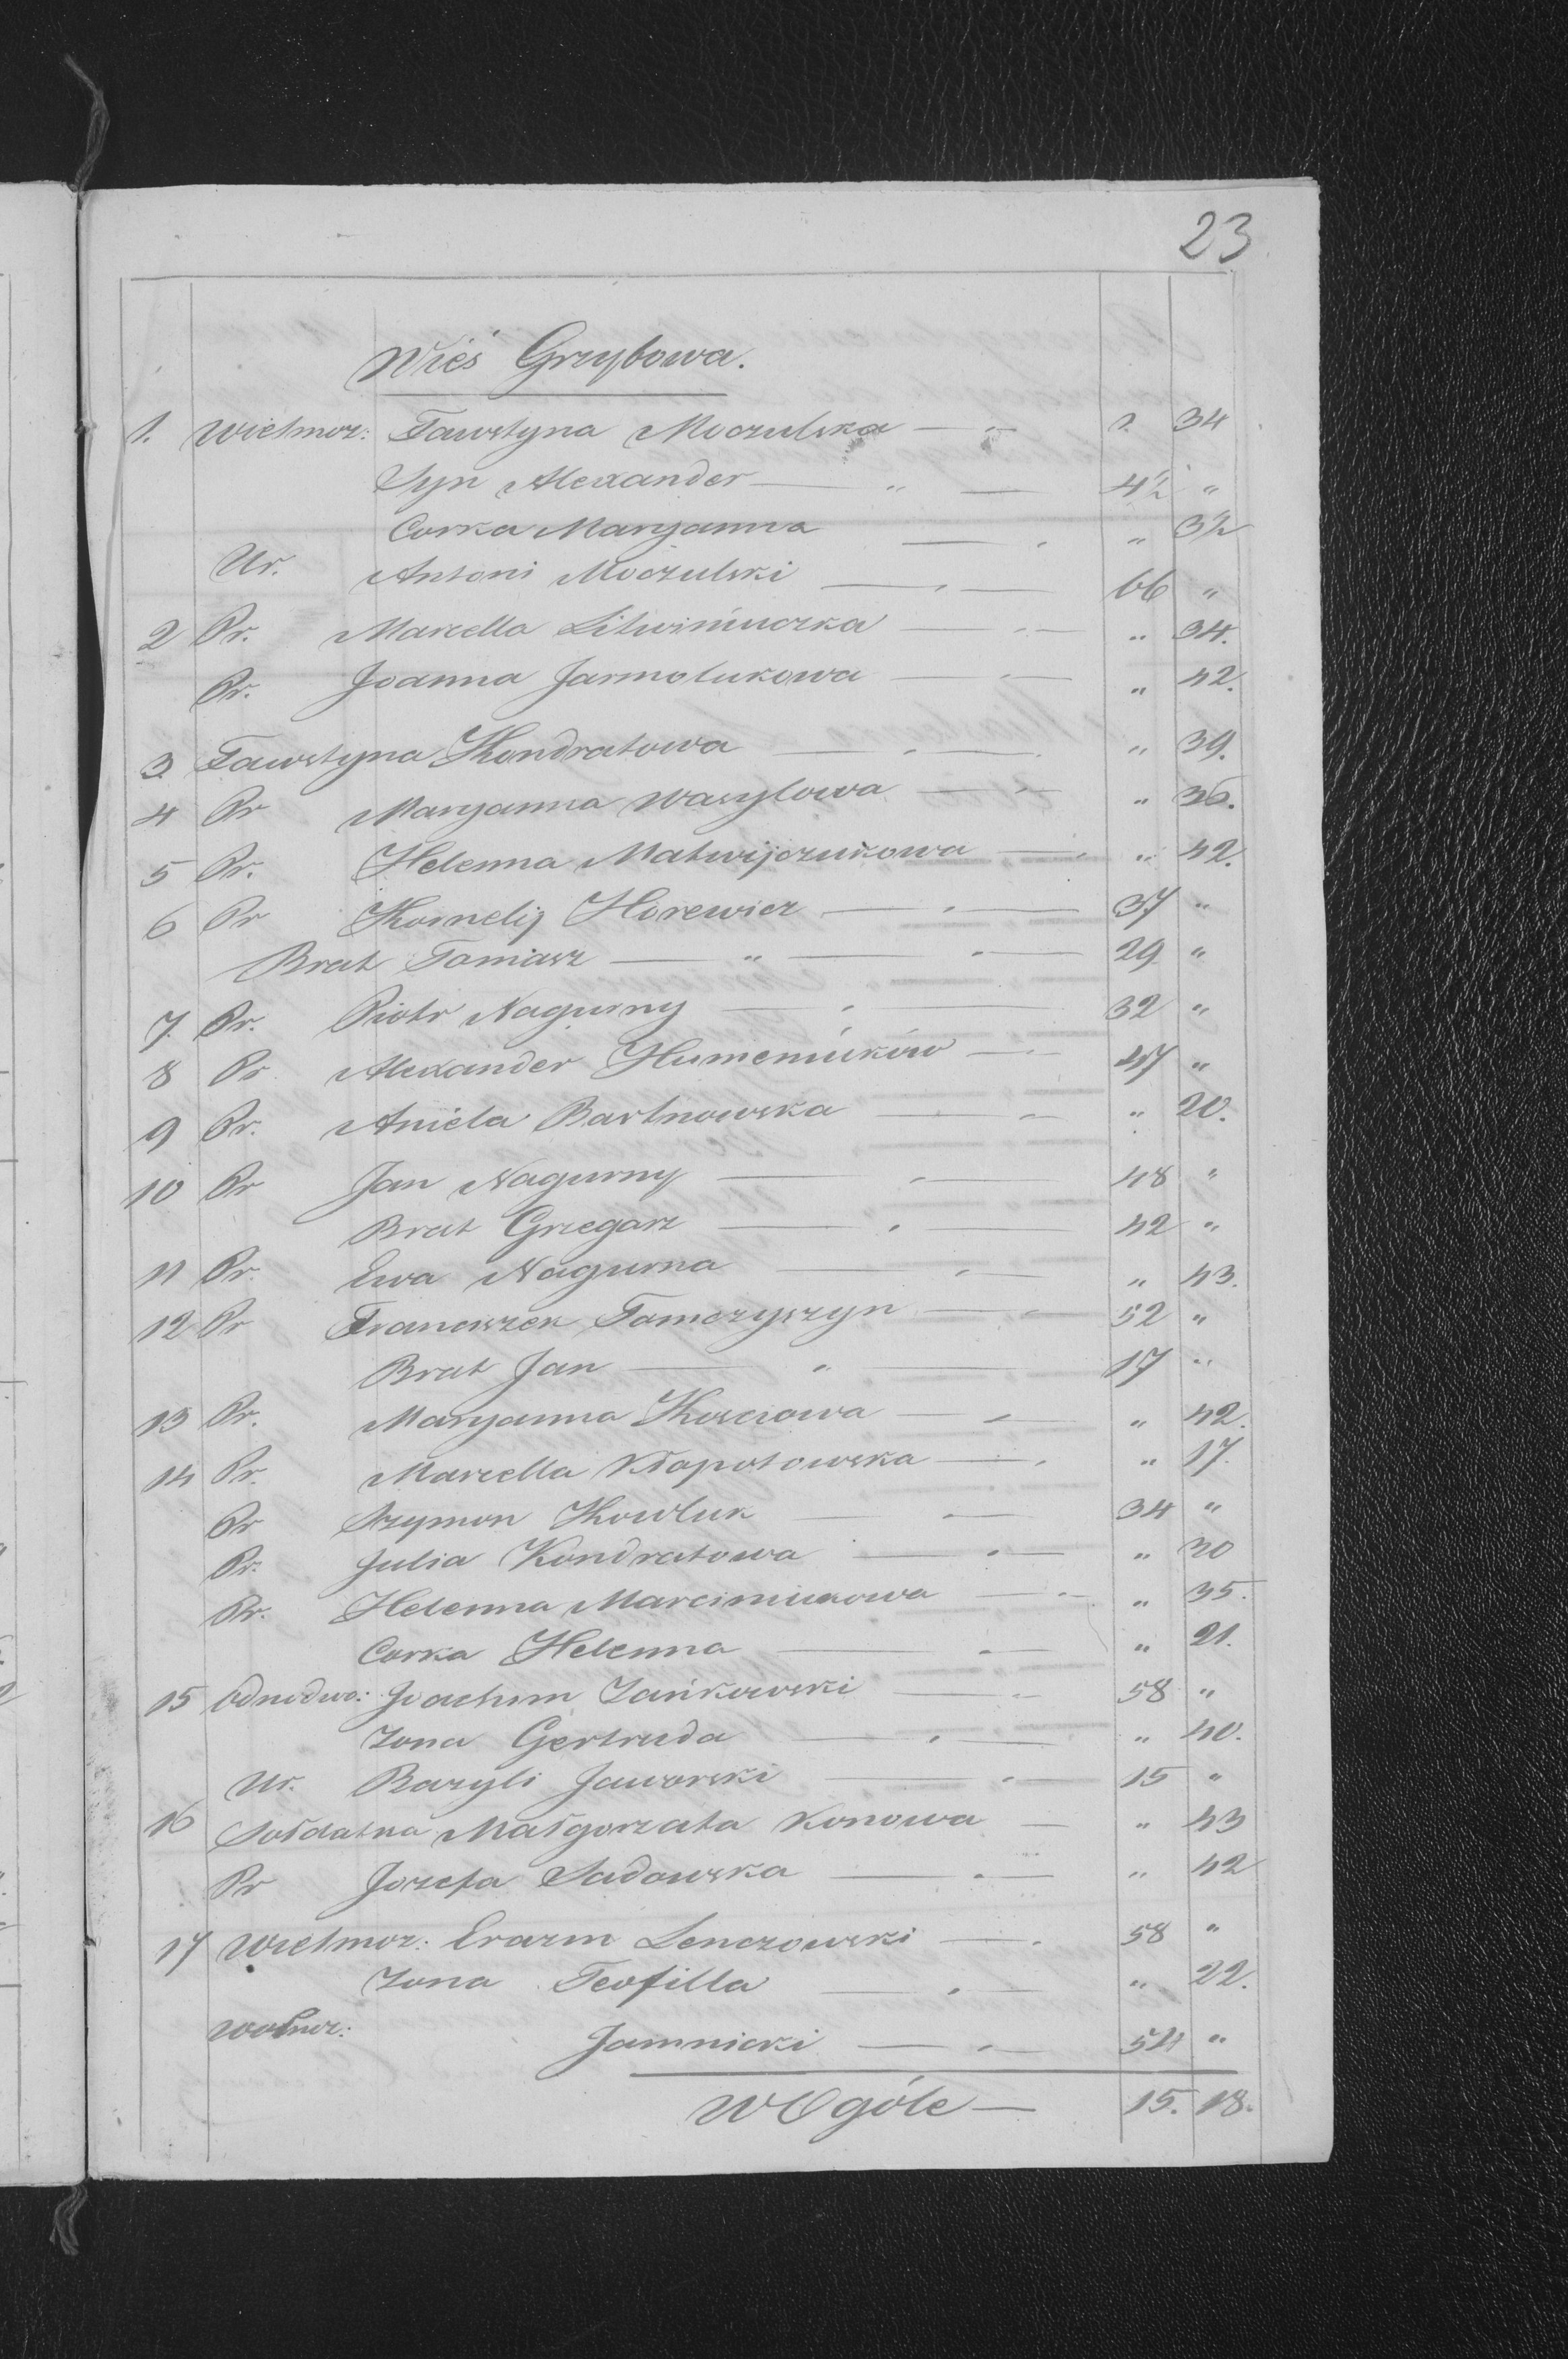 23
Wieś Grzybowa.
1. Wielmoż: Faustyna Moczulska — „ — „ 34
Syn Alexander — „ — 4½ „
Corka Maryanna — „ „ 3½
Ur. Antoni Moczulski — „ — 66 „
2 Pr. Marcella Litwiniuczka — „ — „ 34.
Pr. Joanna Jarmolukowa — „ — „ 42.
3 Faustyna Kondratowa — „ — „ 39.
4 Pr Maryanna Wasylowa — „ — „ 36.
5 Pr. Helenna Matwijczukowa — „ „ 42.
6 Pr Kornelij Horewicz — „ — 37 „
Brat Tomasz — „ — „ 29 „
7. Pr. Piotr Nagurny — „ — 32 „
8 Pr Alexander Humeniuków — „ 47 „
9 Pr. Aniela Bartnowska — „ — „ 20.
10 Pr Jan Nagurny — „ — 48 „
Brat Grzegorz — „ — 42 „
11 Pr. Ewa Nagurna — „ — „ 43.
12 Pr Franciszek Tomczyszyn — „ 52 „
Brat Jan — „ — 17 „
13 Pr. Maryanna Kosciowa — „ — „ 42.
14 Pr. Marcella Kłapotowska — „ „ 17.
Pr Szymon Kowluk — „ — 34 „
Pr. Julia Kondratowa — „ — „ 30
Pr. Helenna Marciniukowa — „ „ 35.
Corka Helenna — „ — „ 21.
15 Odnodwo: Joachim Zańkowski — „ 58 „
Zona Gertruda — „ — „ 40.
Ur. Bazyli Jaworski — „ — 15 „
16 Sołdatka Małgorzata Konowa — „ 43
Pr Jozefa Sadowska — „ — „ 42
17 Wielmoz: Erazm Lenczowski — „ 58 „
Zona Teofilla — „ — „ 22.
Jamnicki — „ — 54 „
W Ogóle — 15. 18.